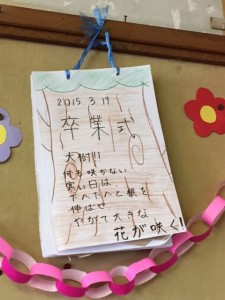 2015 3.19
卒業式
大樹!!
何も咲かない
寒い日は、
下へ下へと根を
伸ばせ
やがて大きな
花が咲く!